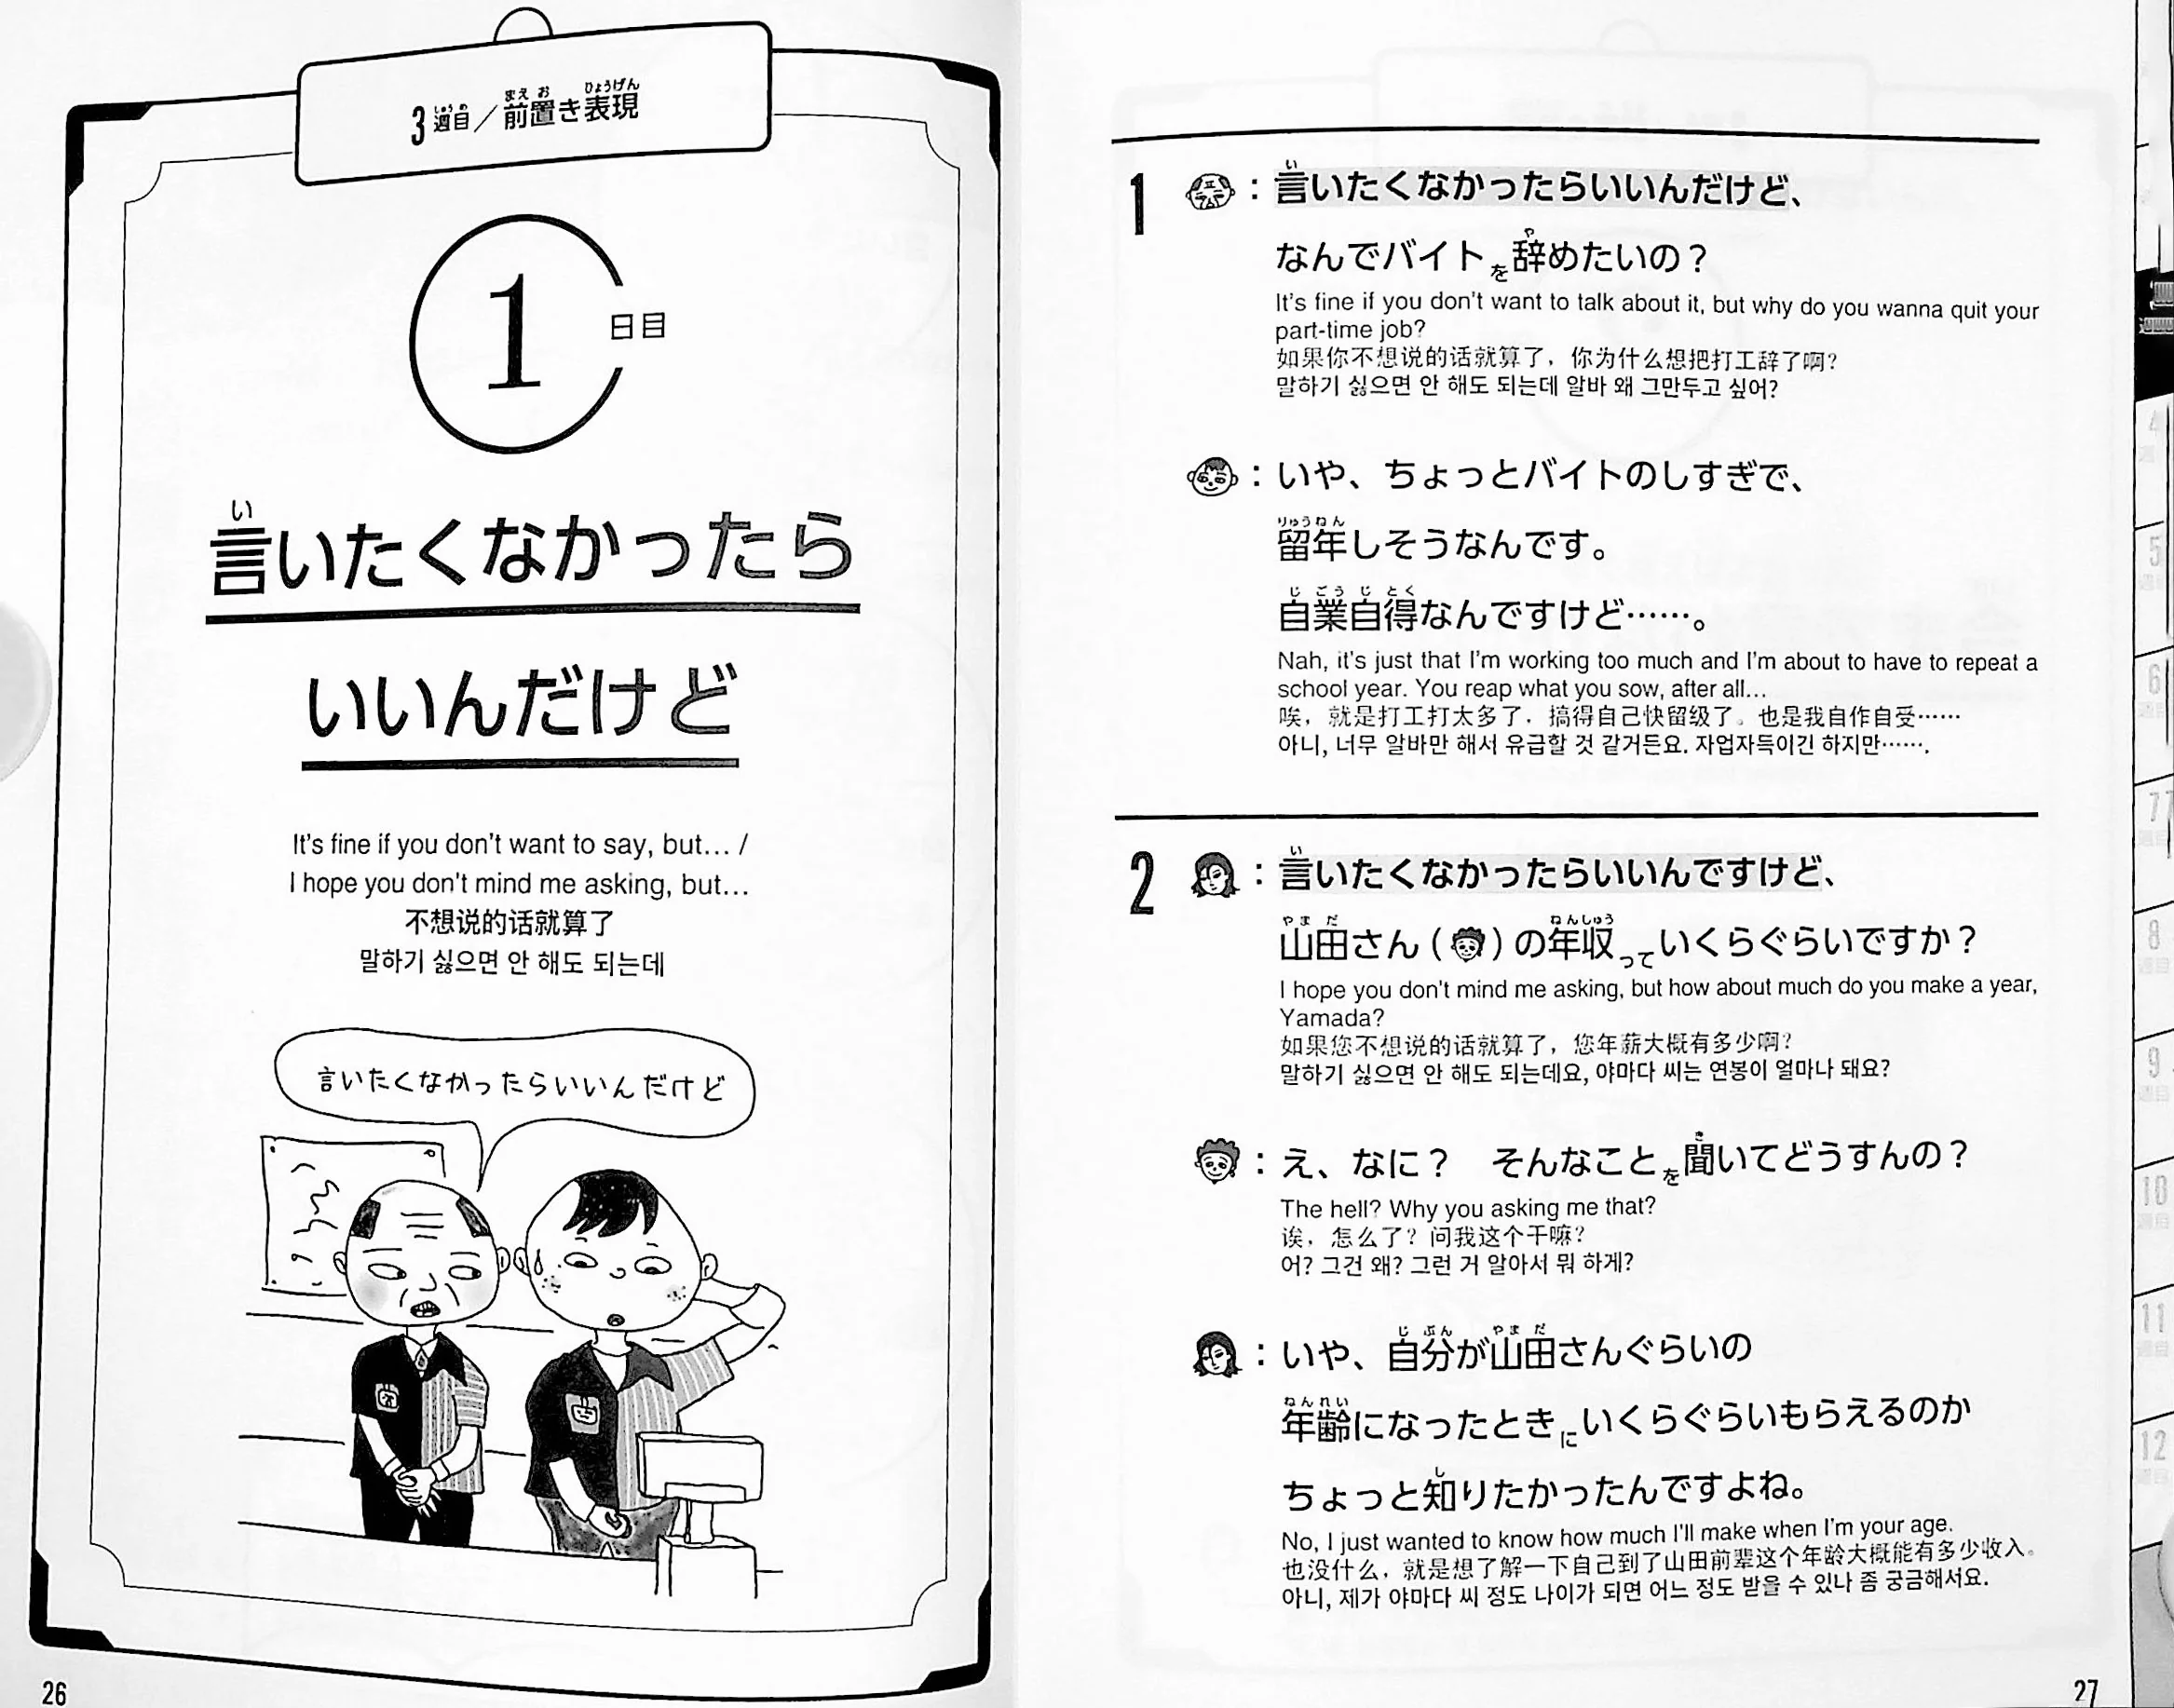 3週目／前置き表現
しゅうめ まえ お ひょうげん
1
日目
い
言いたくなかったら
いいんだけど
It's fine if you don't want to say, but… /
I hope you don't mind me asking, but…
不想说的话就算了
말하기 싫으면 안 해도 되는데
言いたくなかったらいいんだけど
26
い
1 ：言いたくなかったらいいんだけど、
や
なんでバイトを辞めたいの？
It's fine if you don't want to talk about it, but why do you wanna quit your
part-time job?
如果你不想说的话就算了，你为什么想把打工辞了啊？
말하기 싫으면 안 해도 되는데 알바 왜 그만두고 싶어?
：いや、ちょっとバイトのしすぎで、
りゅうねん
留年しそうなんです。
じ ごう じ とく
自業自得なんですけど……。
Nah, it's just that I'm working too much and I'm about to have to repeat a
school year. You reap what you sow, after all…
唉，就是打工打太多了，搞得自己快留级了。也是我自作自受……
아니, 너무 알바만 해서 유급할 것 같거든요. 자업자득이긴 하지만…….
い
2 ：言いたくなかったらいいんですけど、
やま だ ねんしゅう
山田さん（ ）の年収っていくらぐらいですか？
I hope you don't mind me asking, but how about much do you make a year,
Yamada?
如果您不想说的话就算了，您年薪大概有多少啊？
말하기 싫으면 안 해도 되는데요, 야마다 씨는 연봉이 얼마나 돼요?
き
：え、なに？　そんなことを聞いてどうすんの？
The hell? Why you asking me that?
诶，怎么了？问我这个干嘛？
어? 그건 왜? 그런 거 알아서 뭐 하게?
じ ぶん やま だ
：いや、自分が山田さんぐらいの
ねんれい
年齢になったときにいくらぐらいもらえるのか
し
ちょっと知りたかったんですよね。
No, I just wanted to know how much I'll make when I'm your age.
也没什么，就是想了解一下自己到了山田前辈这个年龄大概能有多少收入。
아니, 제가 야마다 씨 정도 나이가 되면 어느 정도 받을 수 있나 좀 궁금해서요.
27
4
5
6
7
8
9
10
11
12